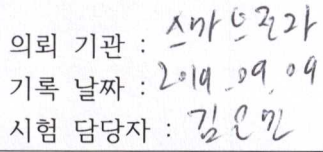 의뢰 기관 : 스마트론라
기록 날짜 : 2019.09.09
시험 담당자 : 김은민